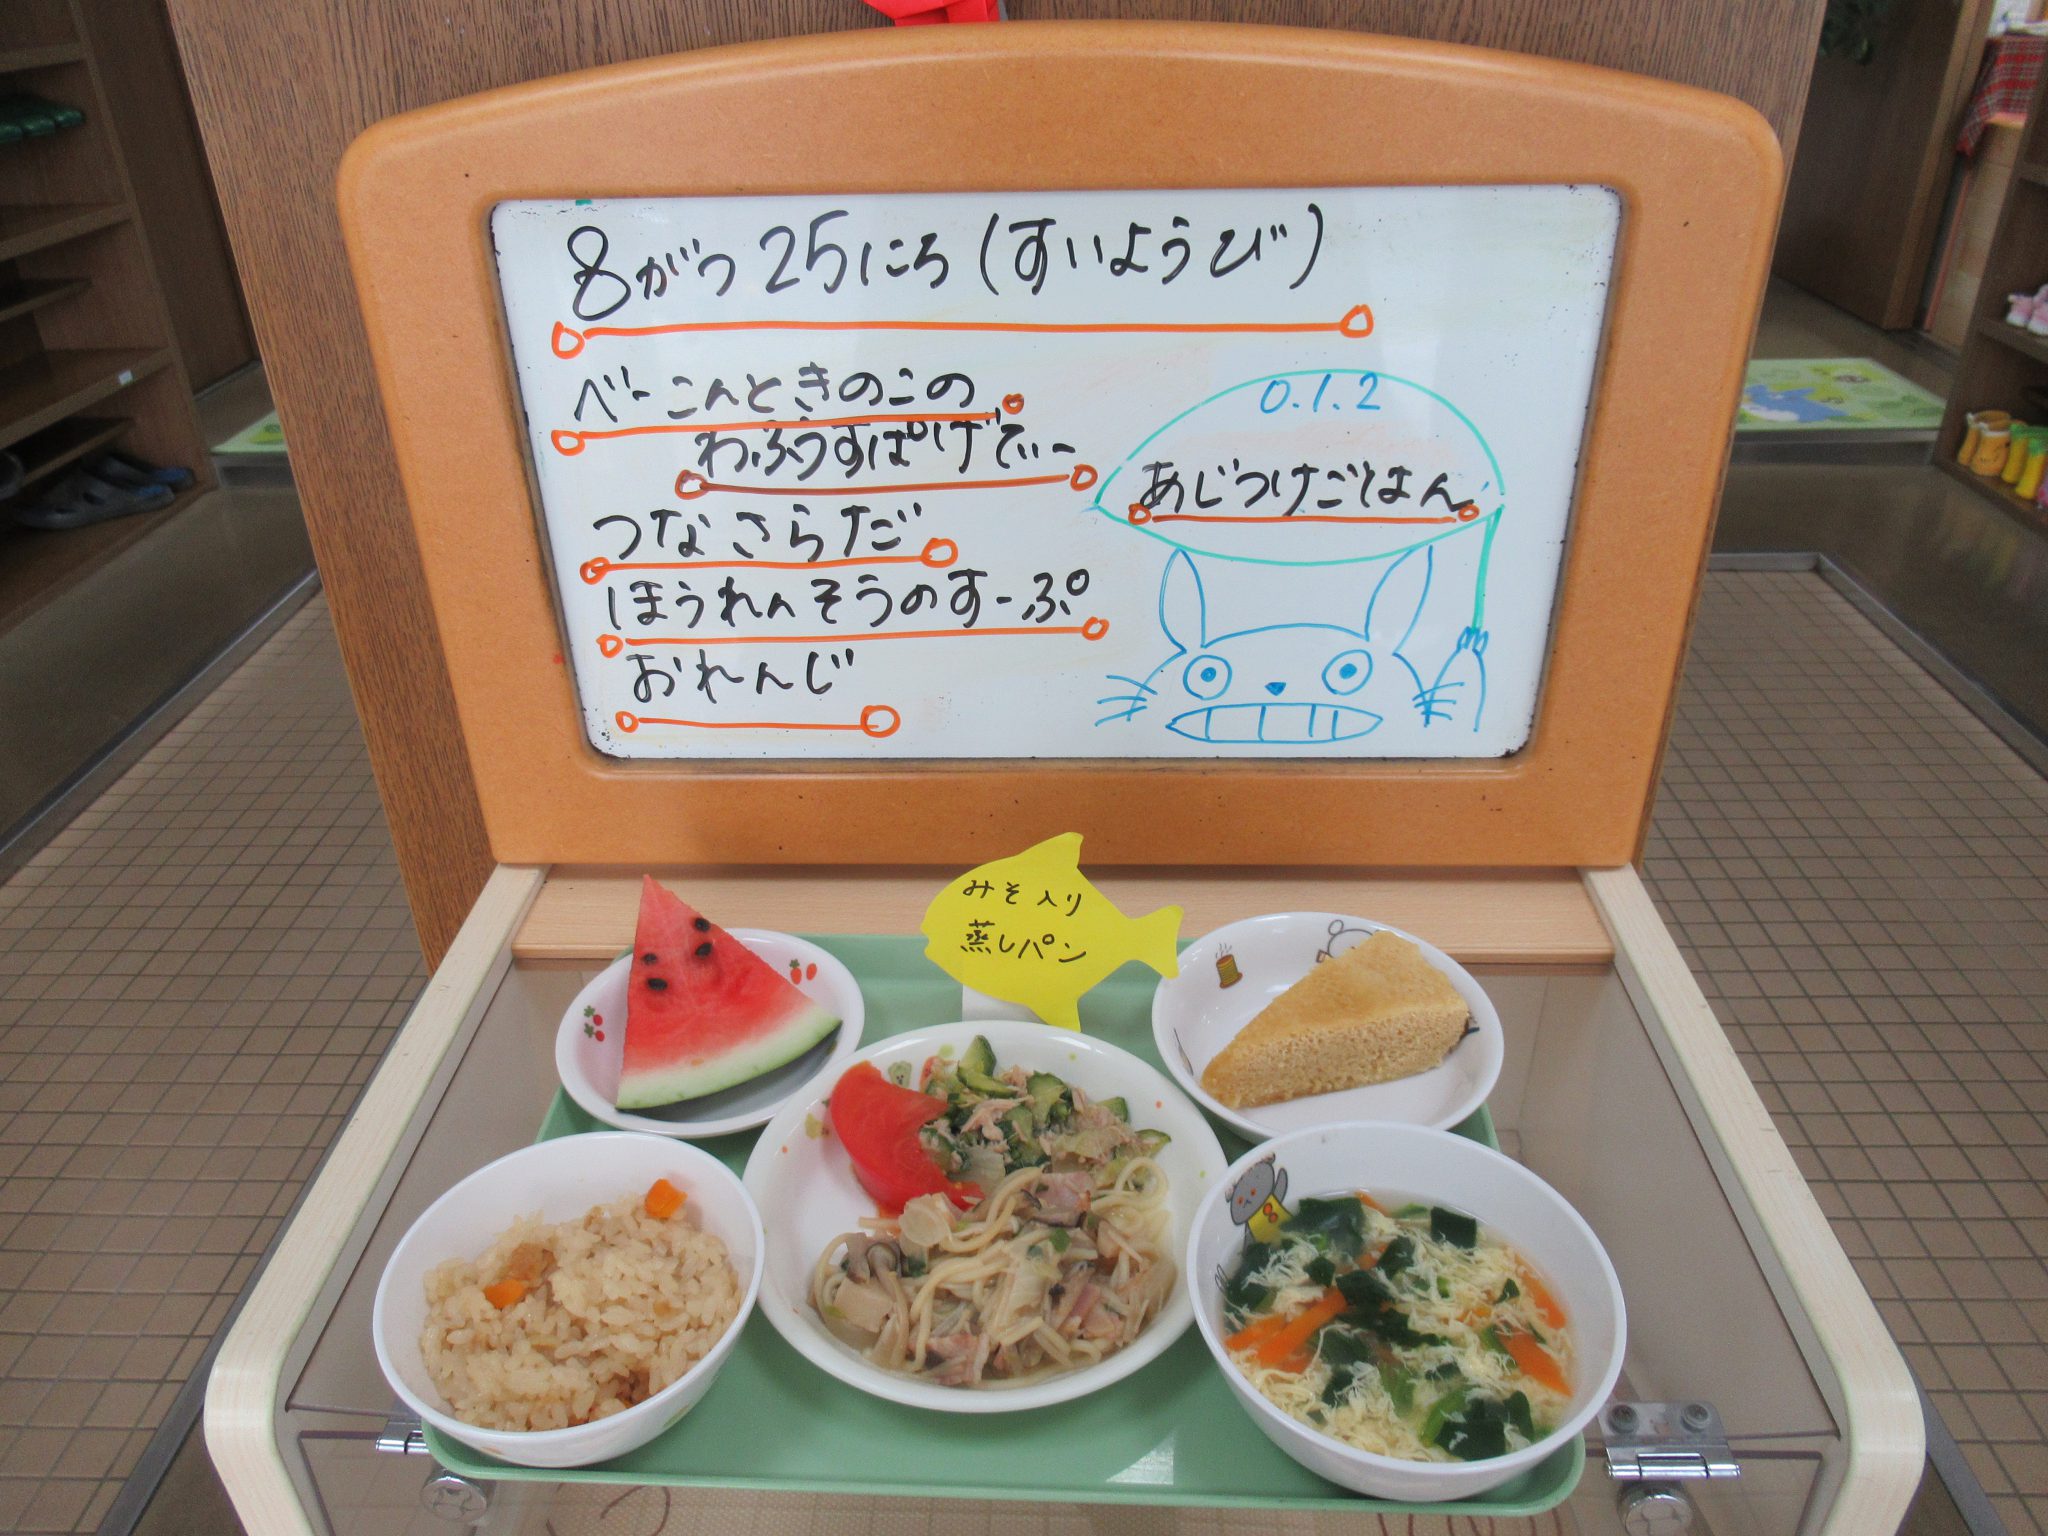 8がつ25にち(すいようび)
べーこんときのこの
わふうすぱげてぃー
つなさらだ
ほうれんそうのすーぷ
おれんじ
0.1.2
あじつけごはん
みそ入り
蒸しパン